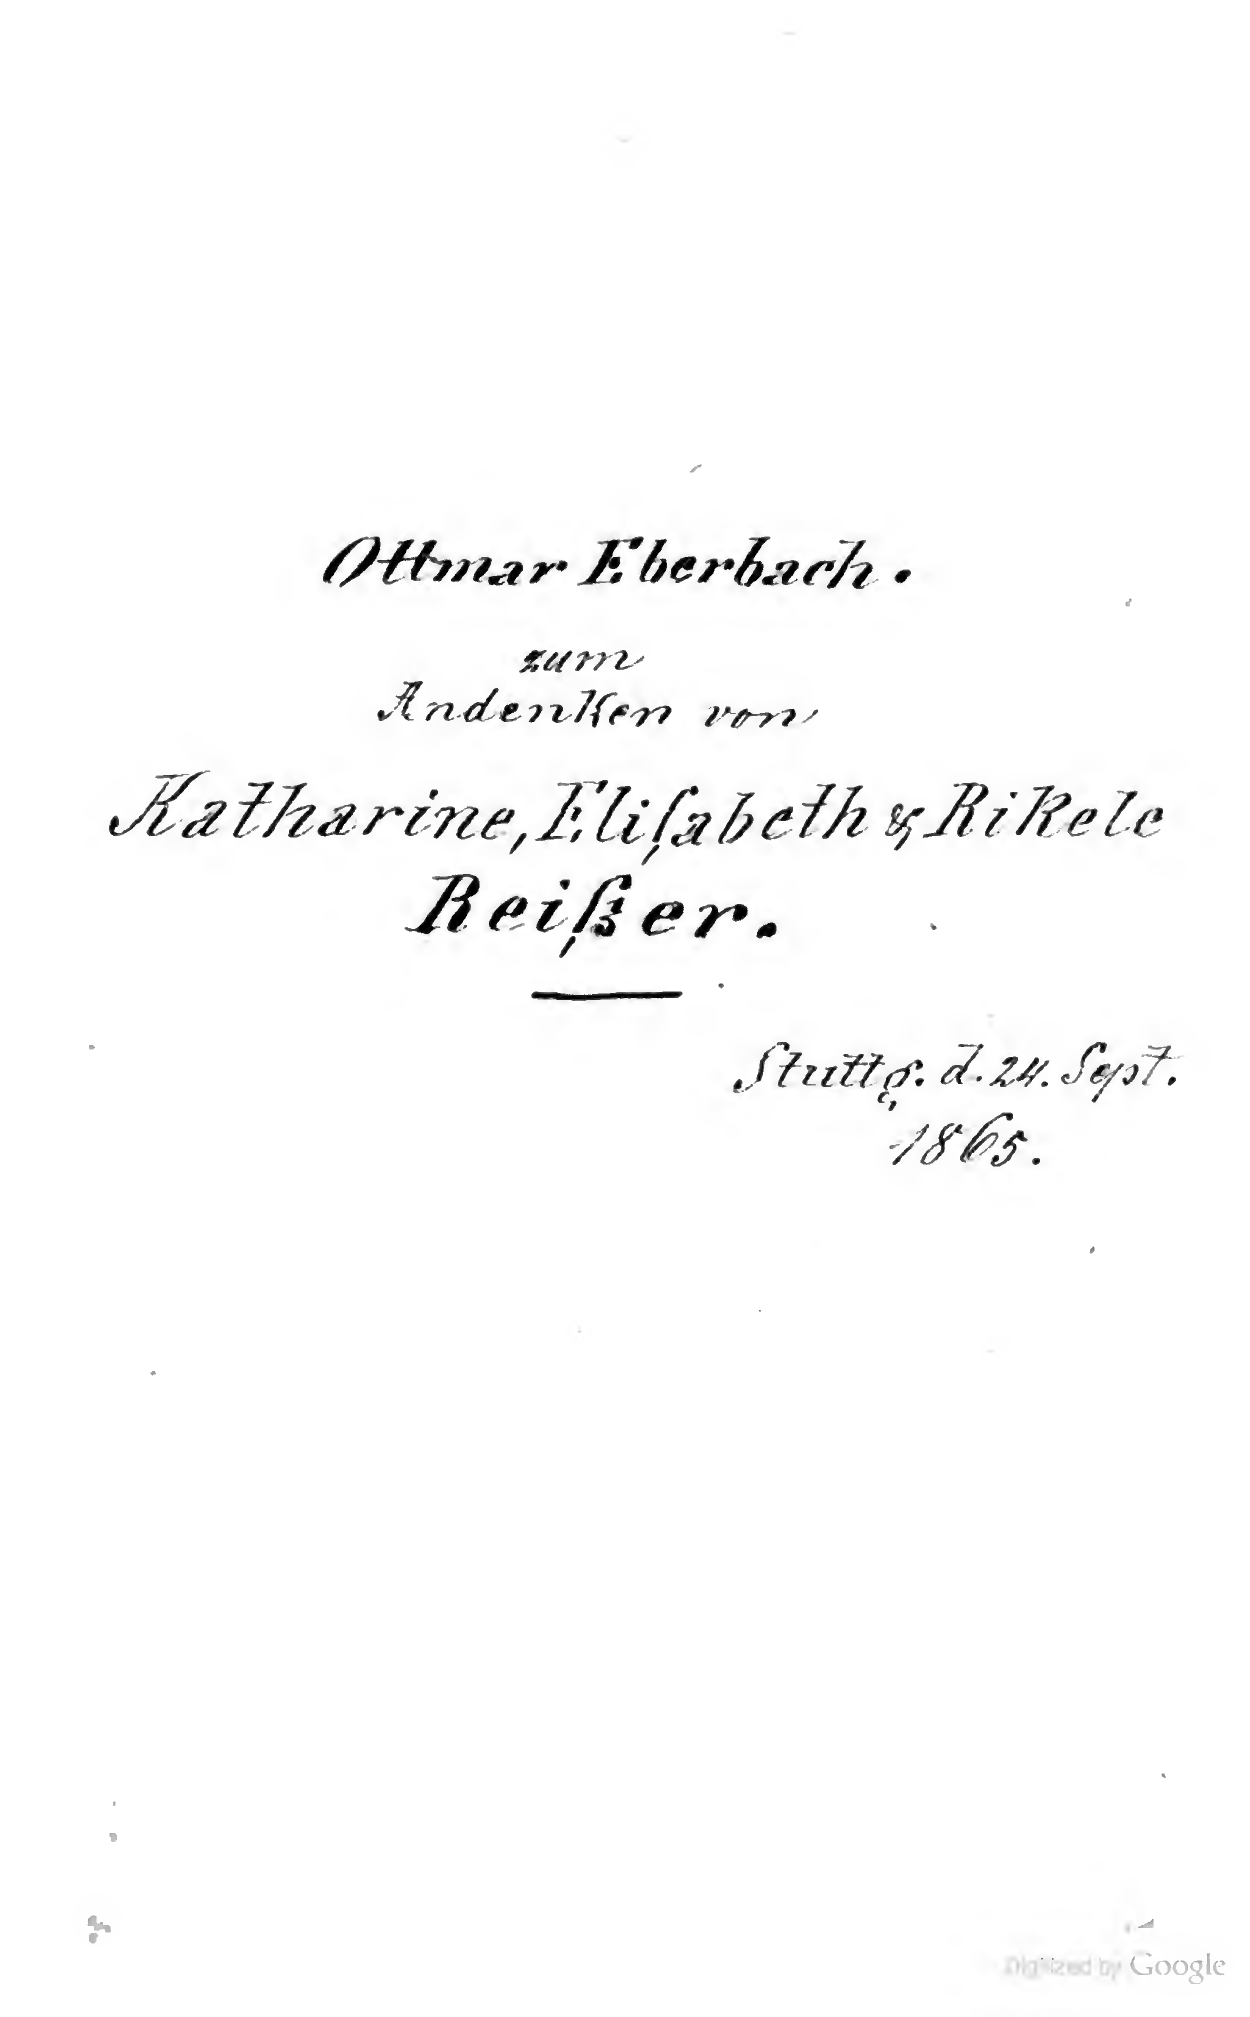 Ottmar Eberbach.
zum
Andenken von
Katharine, Eliſabeth & Rikele
Reißer.
Stuttg. d. 24. Sept.
1865.
Digitized by Google